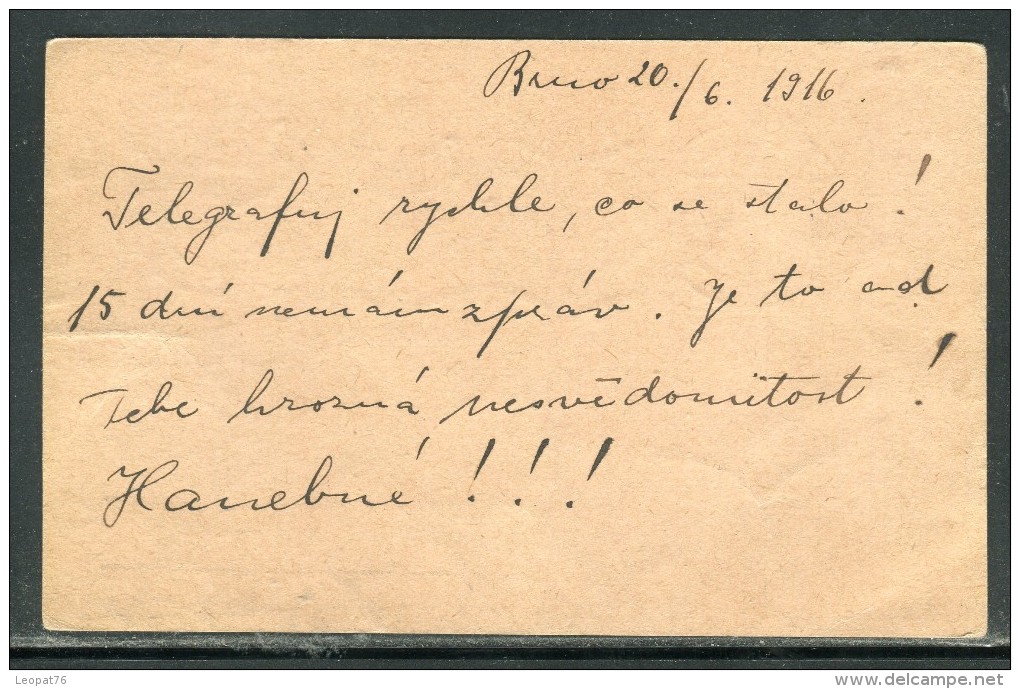 Brno 20./6. 1916.
Telegrafuj rychle, co se stalo!
15 dní nemám zpráv. Je to od
Tebe hrozná nesvědomitost!
Hanebné!!!
Leopat76
delcampe.net